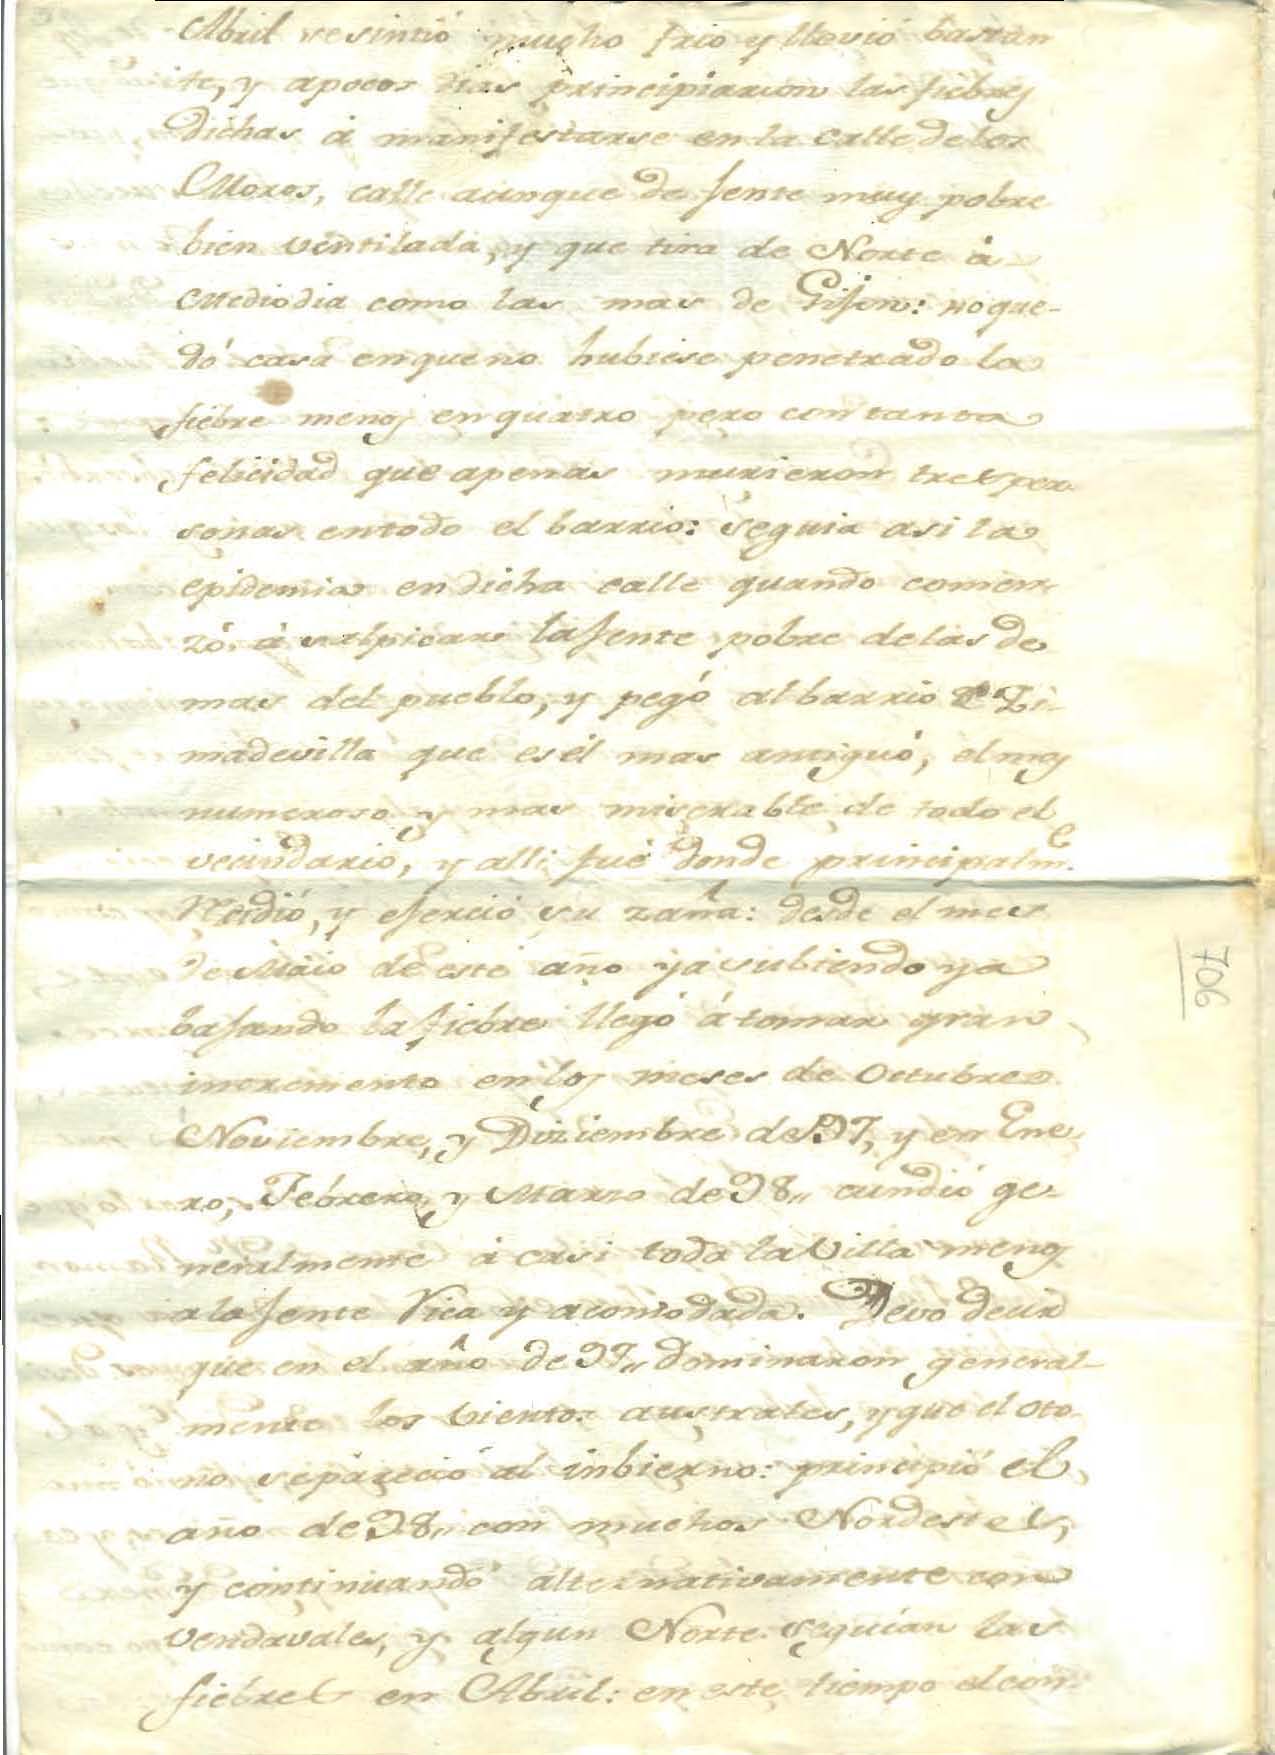 Abril se sintió mucho frio y llovió bastan
te, y apocos dias principiaron las fiebres
dichas á manifestarse en la Calle delos
Moros, calle aunque de jente muy pobre
bien ventilada, y que tira de Norte á
Mediodia como las mas de Gijon: no que-
dó casa enqueno hubiese penetrado la
fiebre menos en quatro pero con tanta
felicidad que apenas murieron tres per
sonas entodo el barrio: seguia asi la
epidemia en dicha calle quando comen
zó á salpicar la jente pobre delas de
mas del pueblo, y pegó al barrio de Zi-
madevilla que es él mas antiguo, el mas
numeroso y mas miserable de todo el
vecindario, y alli fué donde principalmte
Residió, y ejerció su zaña: desde el mes
de Maio de este año ya subiendo ya
bajando la fiebre llegó á tomar gran
incremento en los meses de Octubre
Noviembre, y Diziembre de 97, y en Ene
ro, Febrero, y Marzo de 98,, cundió ge-
neralmente á casi toda la Villa menos
a la jente Rica y acomodada. Devo decir
que en el año de 97,, dominaron general-
mente los vientos australes, y que el Oto
ño separeció al inbierno: principió el
año de 98,, con muchos Nordestes,
y continuando alternativamente con
vendavales, y algun Norte seguian las
fiebres en Abril: en este tiempo el con
706